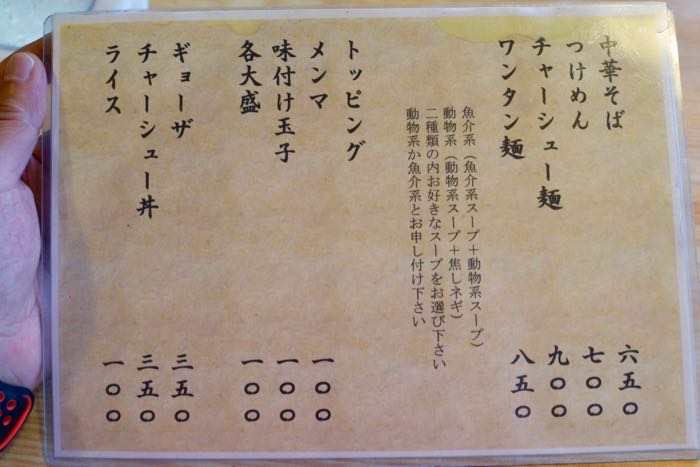 中華そば 六五〇
つけめん 七〇〇
チャーシュー麺 九〇〇
ワンタン麺 八五〇
魚介系（魚介系スープ＋動物系スープ）
動物系（動物系スープ＋焦しネギ）
二種類の内お好きなスープをお選び下さい
動物系か魚介系とお申し付け下さい
トッピング
メンマ 一〇〇
味付け玉子 一〇〇
各大盛 一〇〇
ギョーザ 三五〇
チャーシュー丼 三五〇
ライス 一〇〇